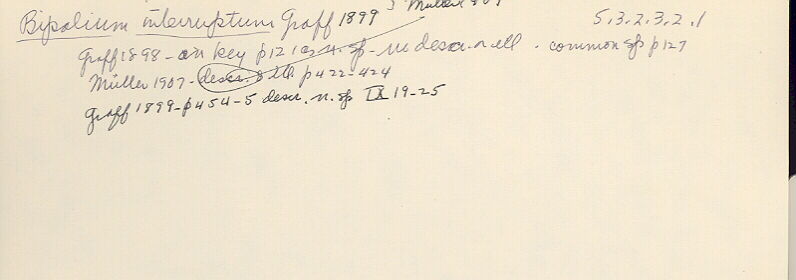 Bipalium interruptum Graff 1899 5.3.2.3.2.1
Graff 1898 - on key p121 as n. sp - no descr. n. ill. common sp p127
Müller 1907 - descr. & ill p422-424
Graff 1899 - p454-5 descr. n. sp IX 19-25